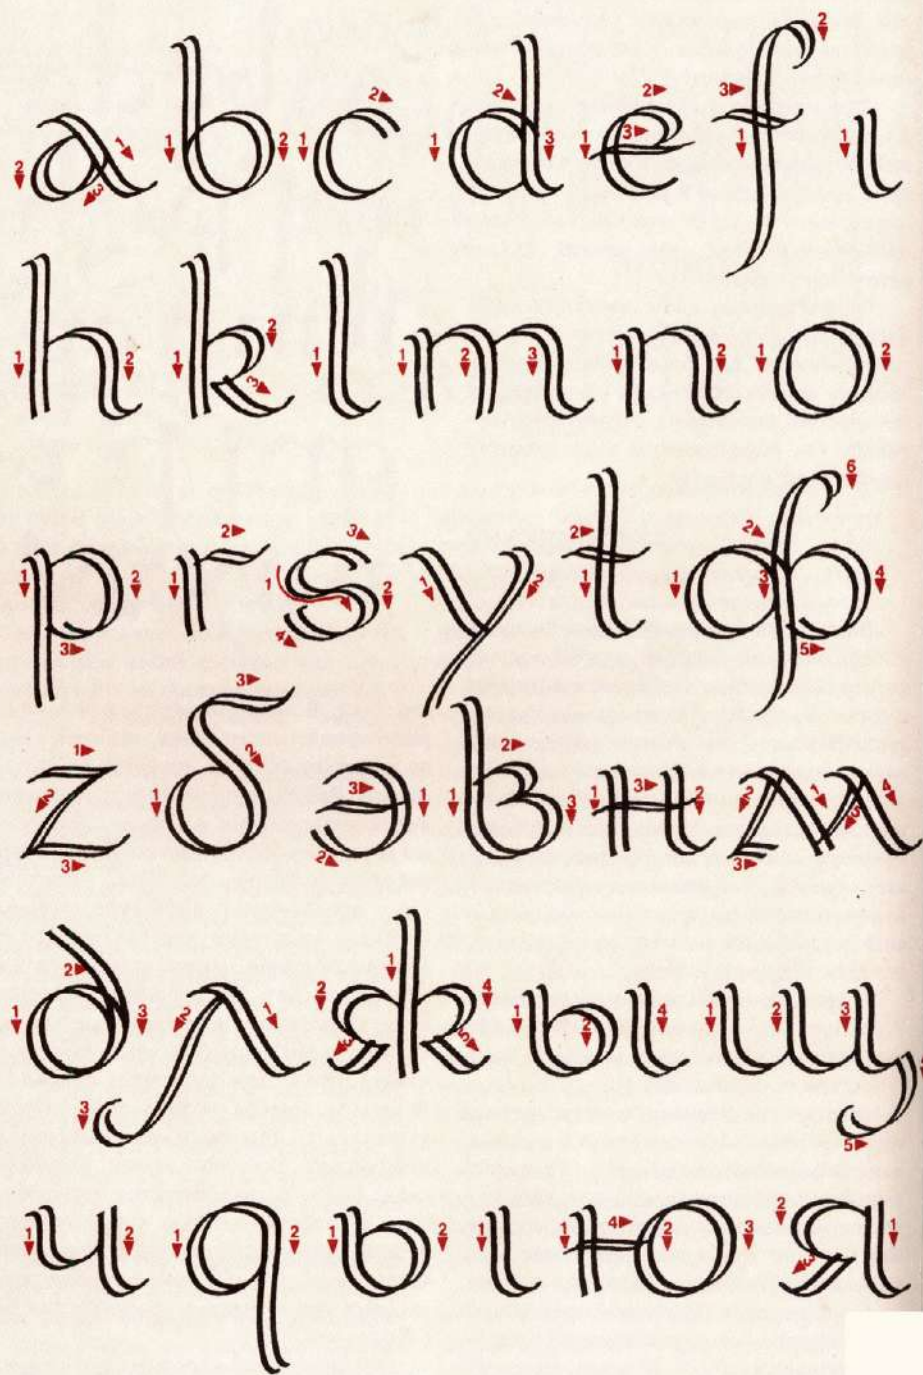 a b c d e f ı
h k l m n o
p r s y t ф
z б э в н м
д л ж ы щ
ч q ь ı ю я